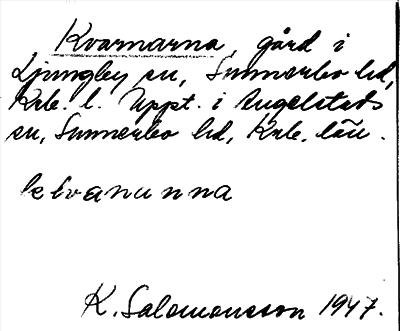 Kvarnarna, gård i
Ljungby sn, Sunnerbo hd,
Krb. l. Uppt. i Angelstads
sn, Sunnerbo hd, Krb. län.
K. Salomonsson 1947.